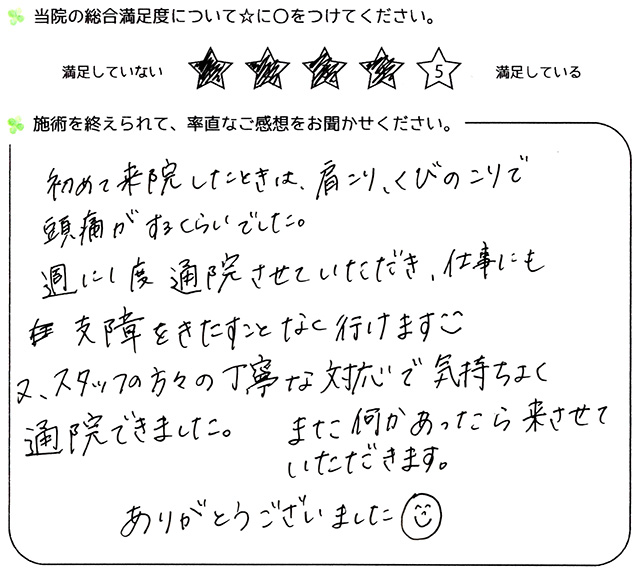 当院の総合満足度について☆に○をつけてください。
満足していない 5 満足している
施術を終えられて、率直なご感想をお聞かせください。
初めて来院したときは、肩こり、くびのこりで
頭痛がするくらいでした。
週に1度通院させていただき、仕事にも
支障をきたすことなく行けます
又、スタッフの方々の丁寧な対応で気持ちよく
通院できました。 また何かあったら来させて
いただきます。
ありがとうございました